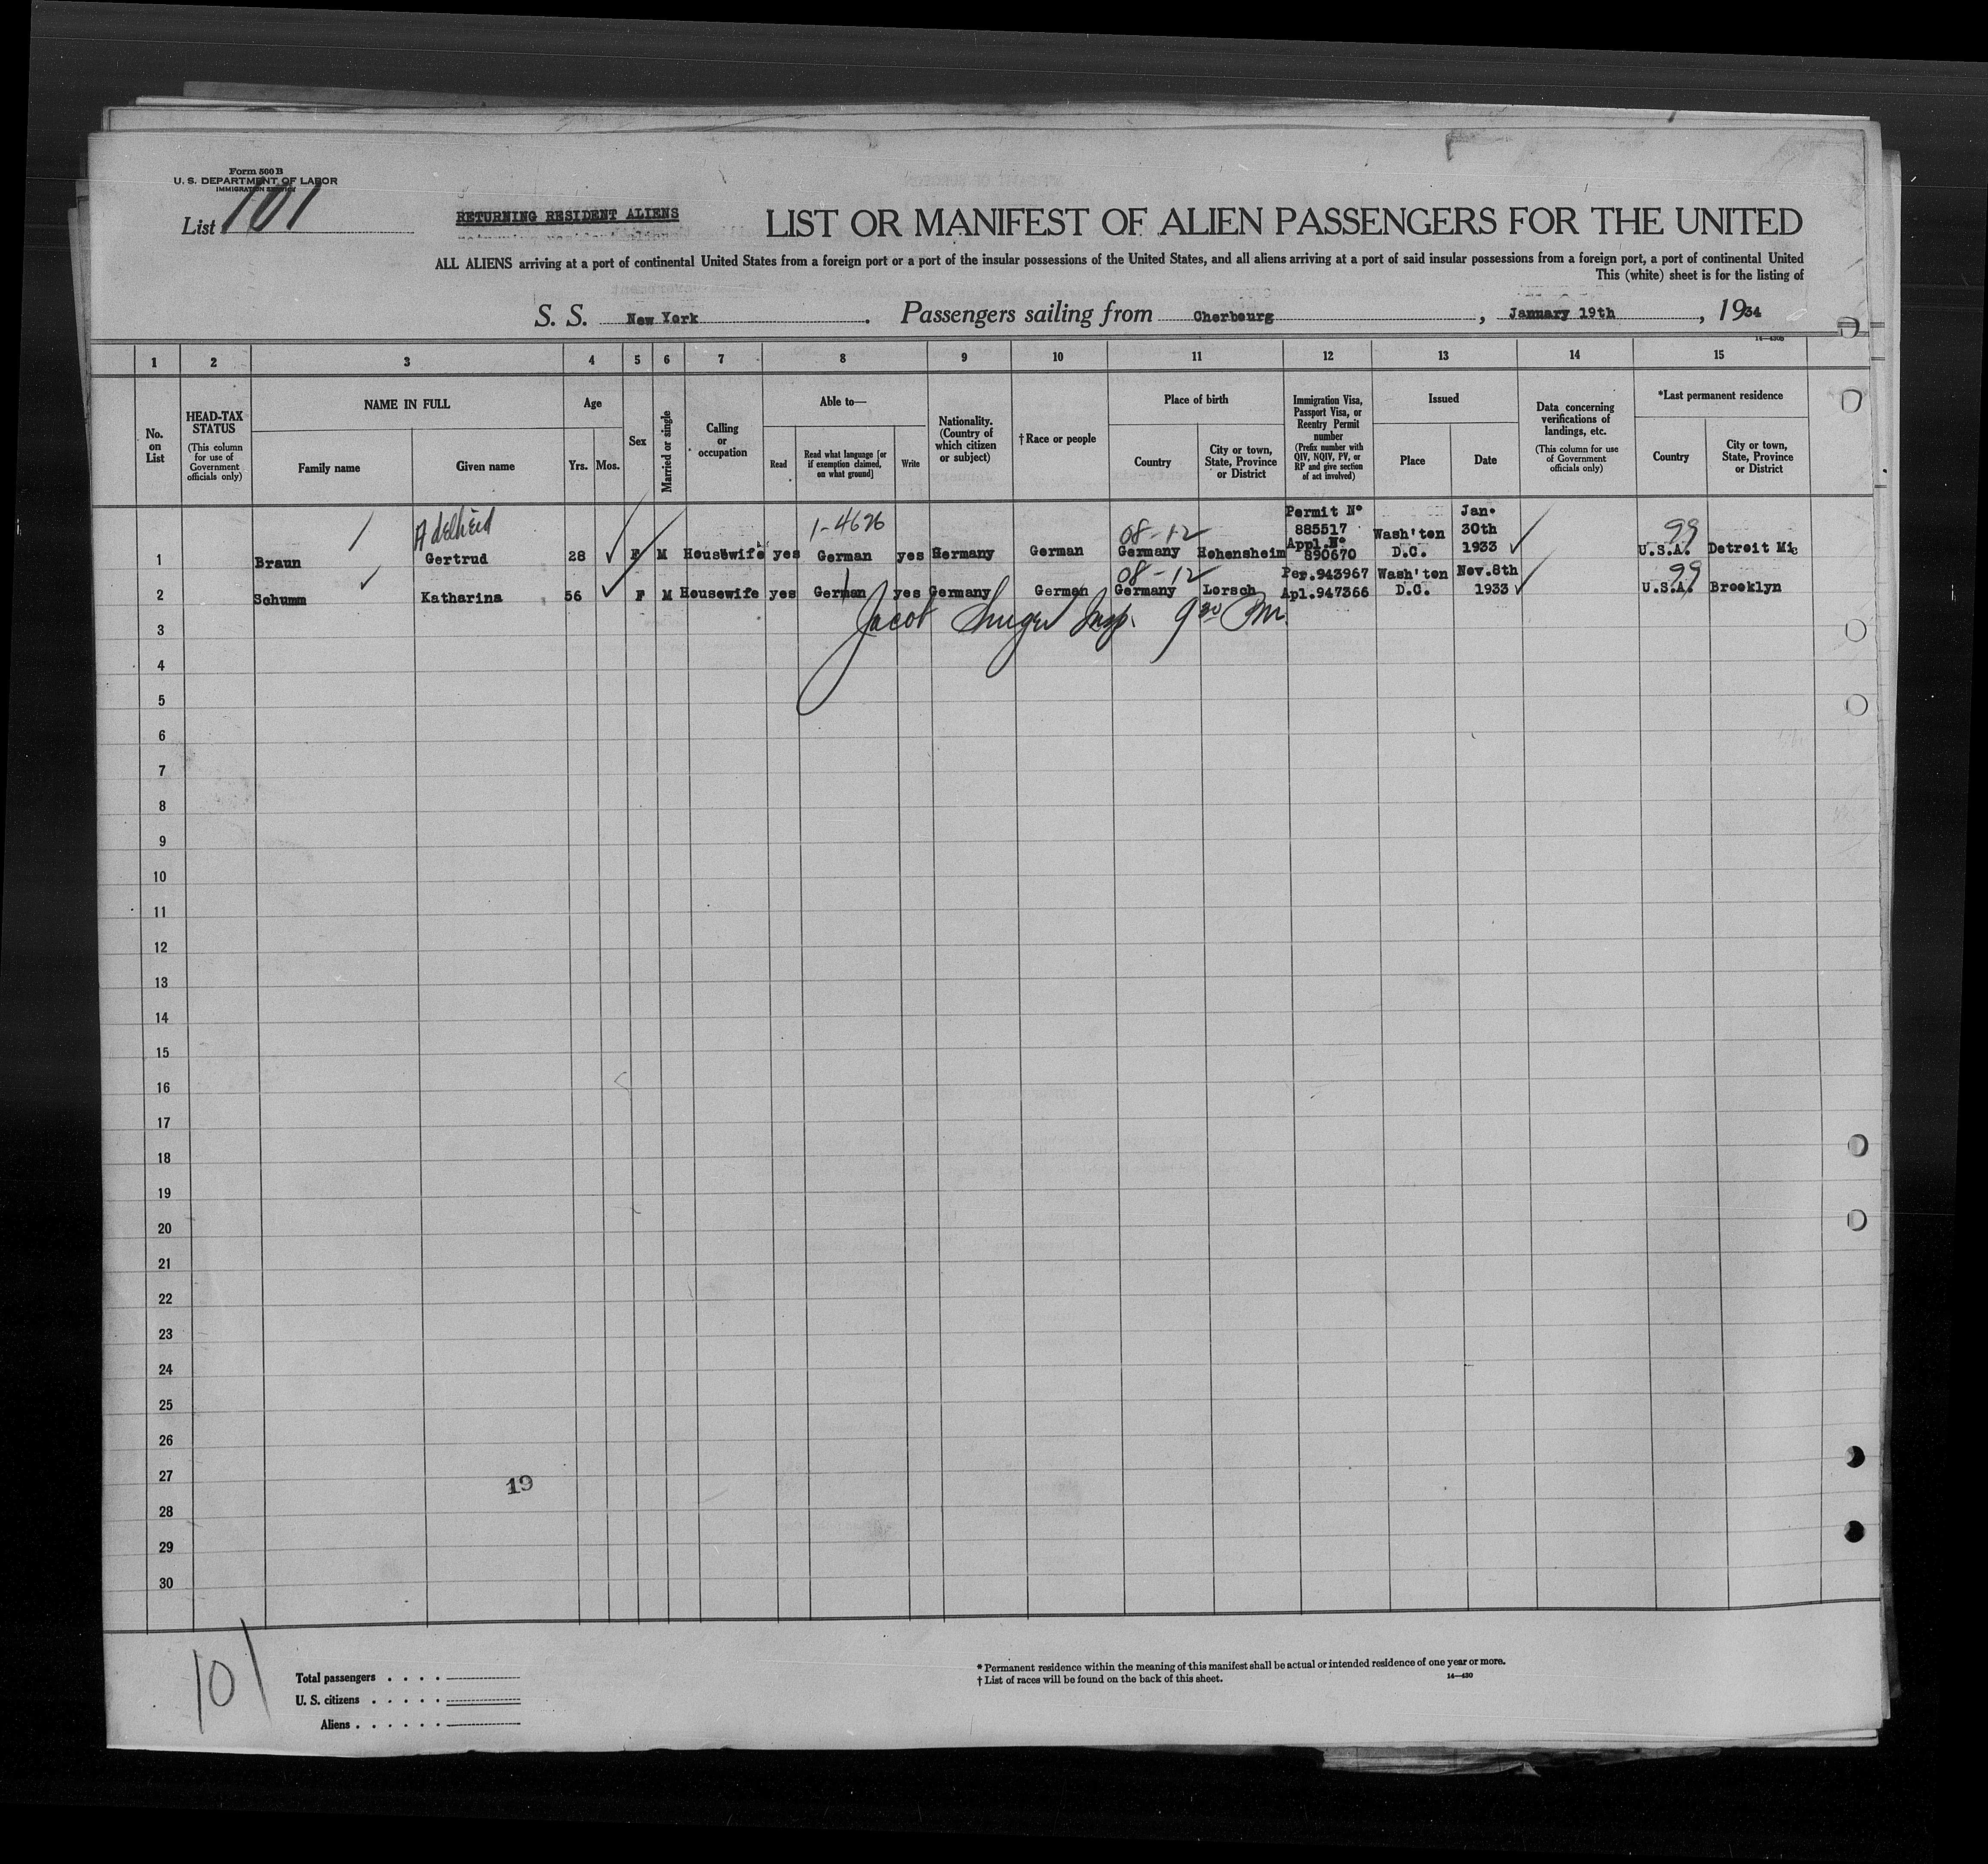 Form 500 B
U. S. DEPARTMENT OF LABOR
IMMIGRATION SERVICE
List 101
RETURNING RESIDENT ALIENS
LIST OR MANIFEST OF ALIEN PASSENGERS FOR THE UNITED
ALL ALIENS arriving at a port of continental United States from a foreign port or a port of the insular possessions of the United States, and all aliens arriving at a port of said insular possessions from a foreign port, a port of continental United
This (white) sheet is for the listing of
S. S. New York. Passengers sailing from Cherbourg, January 19th, 1934
1 2 3 4 5 6 7 8 9 10 11 12 13 14 15
No. on List
HEAD-TAX STATUS
(This column for use of Government officials only)
NAME IN FULL
Family name
Given name
Age
Yrs. Mos.
Sex
Married or single
Calling or occupation
Able to—
Read
Read what language [or if exemption claimed, on what ground]
Write
Nationality. (Country of which citizen or subject)
† Race or people
Place of birth
Country
City or town, State, Province or District
Immigration Visa, Passport Visa, or Reentry Permit number
(Prefix number with QIV, NQIV, PV, or RP and give section of act involved)
Issued
Place
Date
Data concerning verifications of landings, etc.
(This column for use of Government officials only)
*Last permanent residence
Country
City or town, State, Province or District
Adelheid
1-4626
08-12
99
1 Braun Gertrud 28 F M Housewife yes German yes Germany German Germany Hohensheim Permit Nº 885517 Appl.Nº 890670 Wash'ton D.C. Jan. 30th 1933 U.S.A. Detroit Mic
08-12
99
2 Schumm Katharina 56 F M Housewife yes German yes Germany German Germany Lorsch Per.943967 Apl.947366 Wash'ton D.C. Nov.8th 1933 U.S.A. Brooklyn
Jacob Insp. 9 30
3
4
5
6
7
8
9
10
11
12
13
14
15
16
17
18
19
20
21
22
23
24
25
26
27
19
28
29
30
101
Total passengers . . . .
U. S. citizens . . . . .
Aliens . . . . . .
* Permanent residence within the meaning of this manifest shall be actual or intended residence of one year or more.
† List of races will be found on the back of this sheet.
14—430